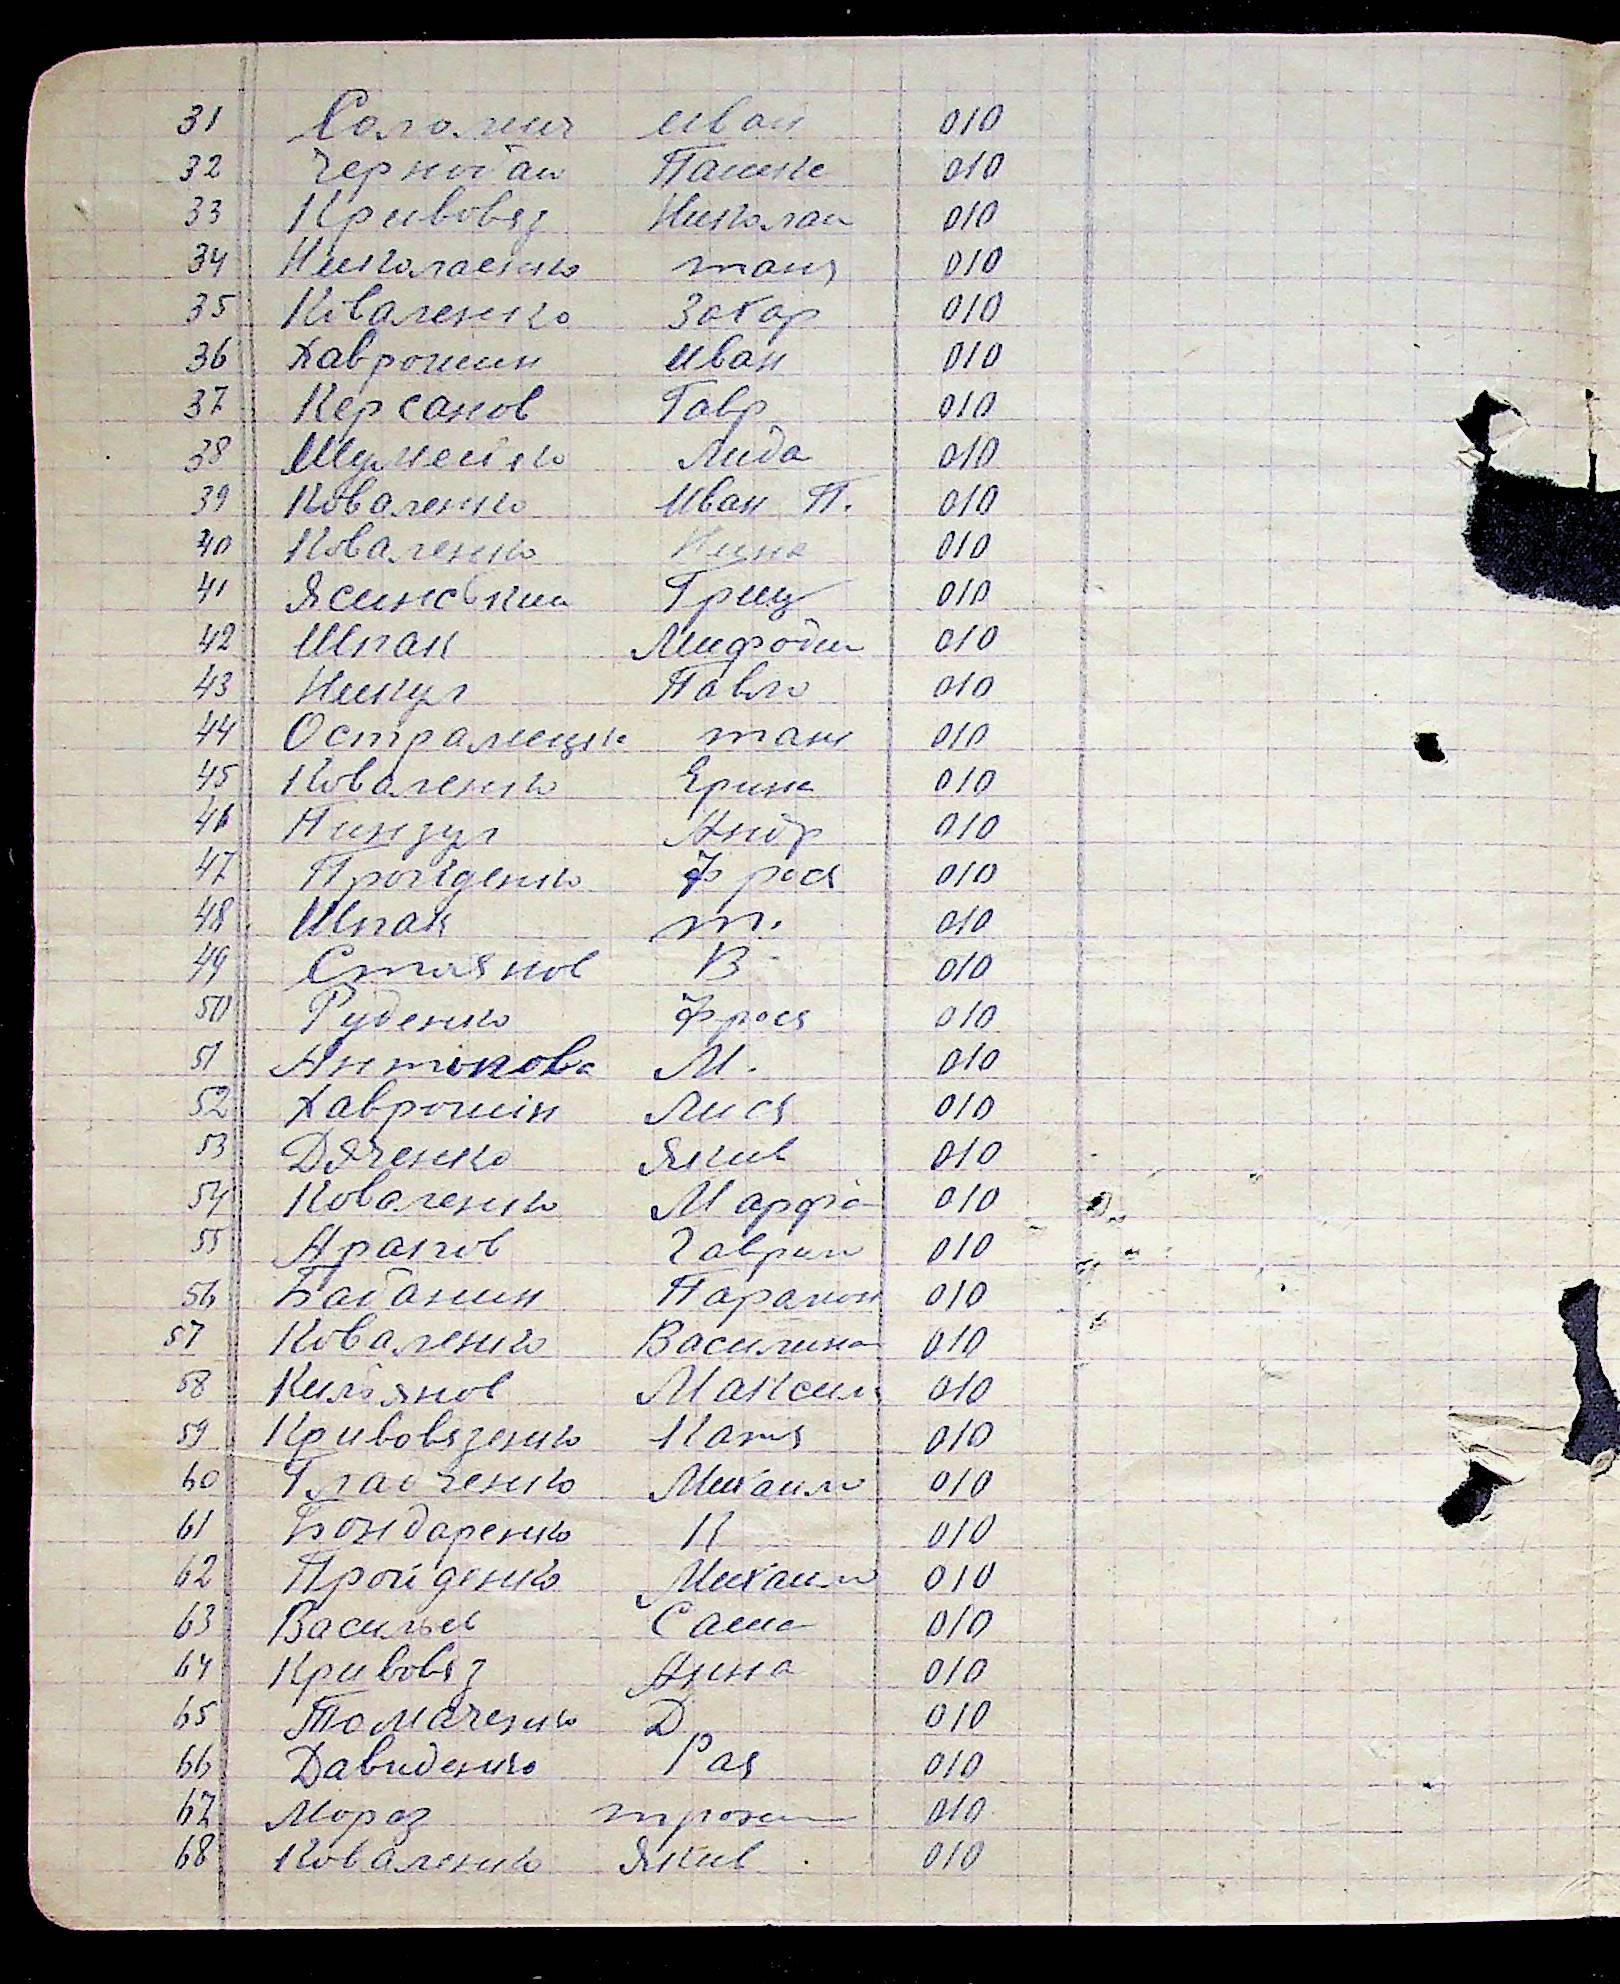 31 Саломич иван 010
32 Чернобай Пашке 010
33 Кривовяз Николаи 010
34 Николаенко таня 010
35 Коваленко Захар 010
36 Хаврошин иван 010
37 Керсанов Гавр 010
38 Шумейко Лида 010
39 Коваленко Иван П. 010
40 Коваленко Нина 010
41 Ясинський Гриц 010
42 Шпак Мифоди 010
43 Никул Павло 010
44 тани 010
45 Коваленко Ерина 010
46 Пинзул Андр 010
47 Пройденко Фрося 010
48 Шпак т. 010
49 Стоянов В 010
50 Руденко Фрося 010
51 Антонова М. 010
52 Хаврошін Лися 010
53 Дяченко Якив 010
54 Коваленко Марфа 010
55 Арапов Гаврило 010
56 Бабанин Парамон 010
57 Коваленко Василина 010
58 Кильянов Максим 010
59 Кривовязенко Катя 010
60 Гладченко Михаило 010
61 Бондаренко К 010
62 Пройденко Михаило 010
63 Васильев Саша 010
64 Кривовяз Анна 010
65 Томаченко Д 010
66 Давиденко Рая 010
67 Мороз 010
68 Коваленко Якив 010